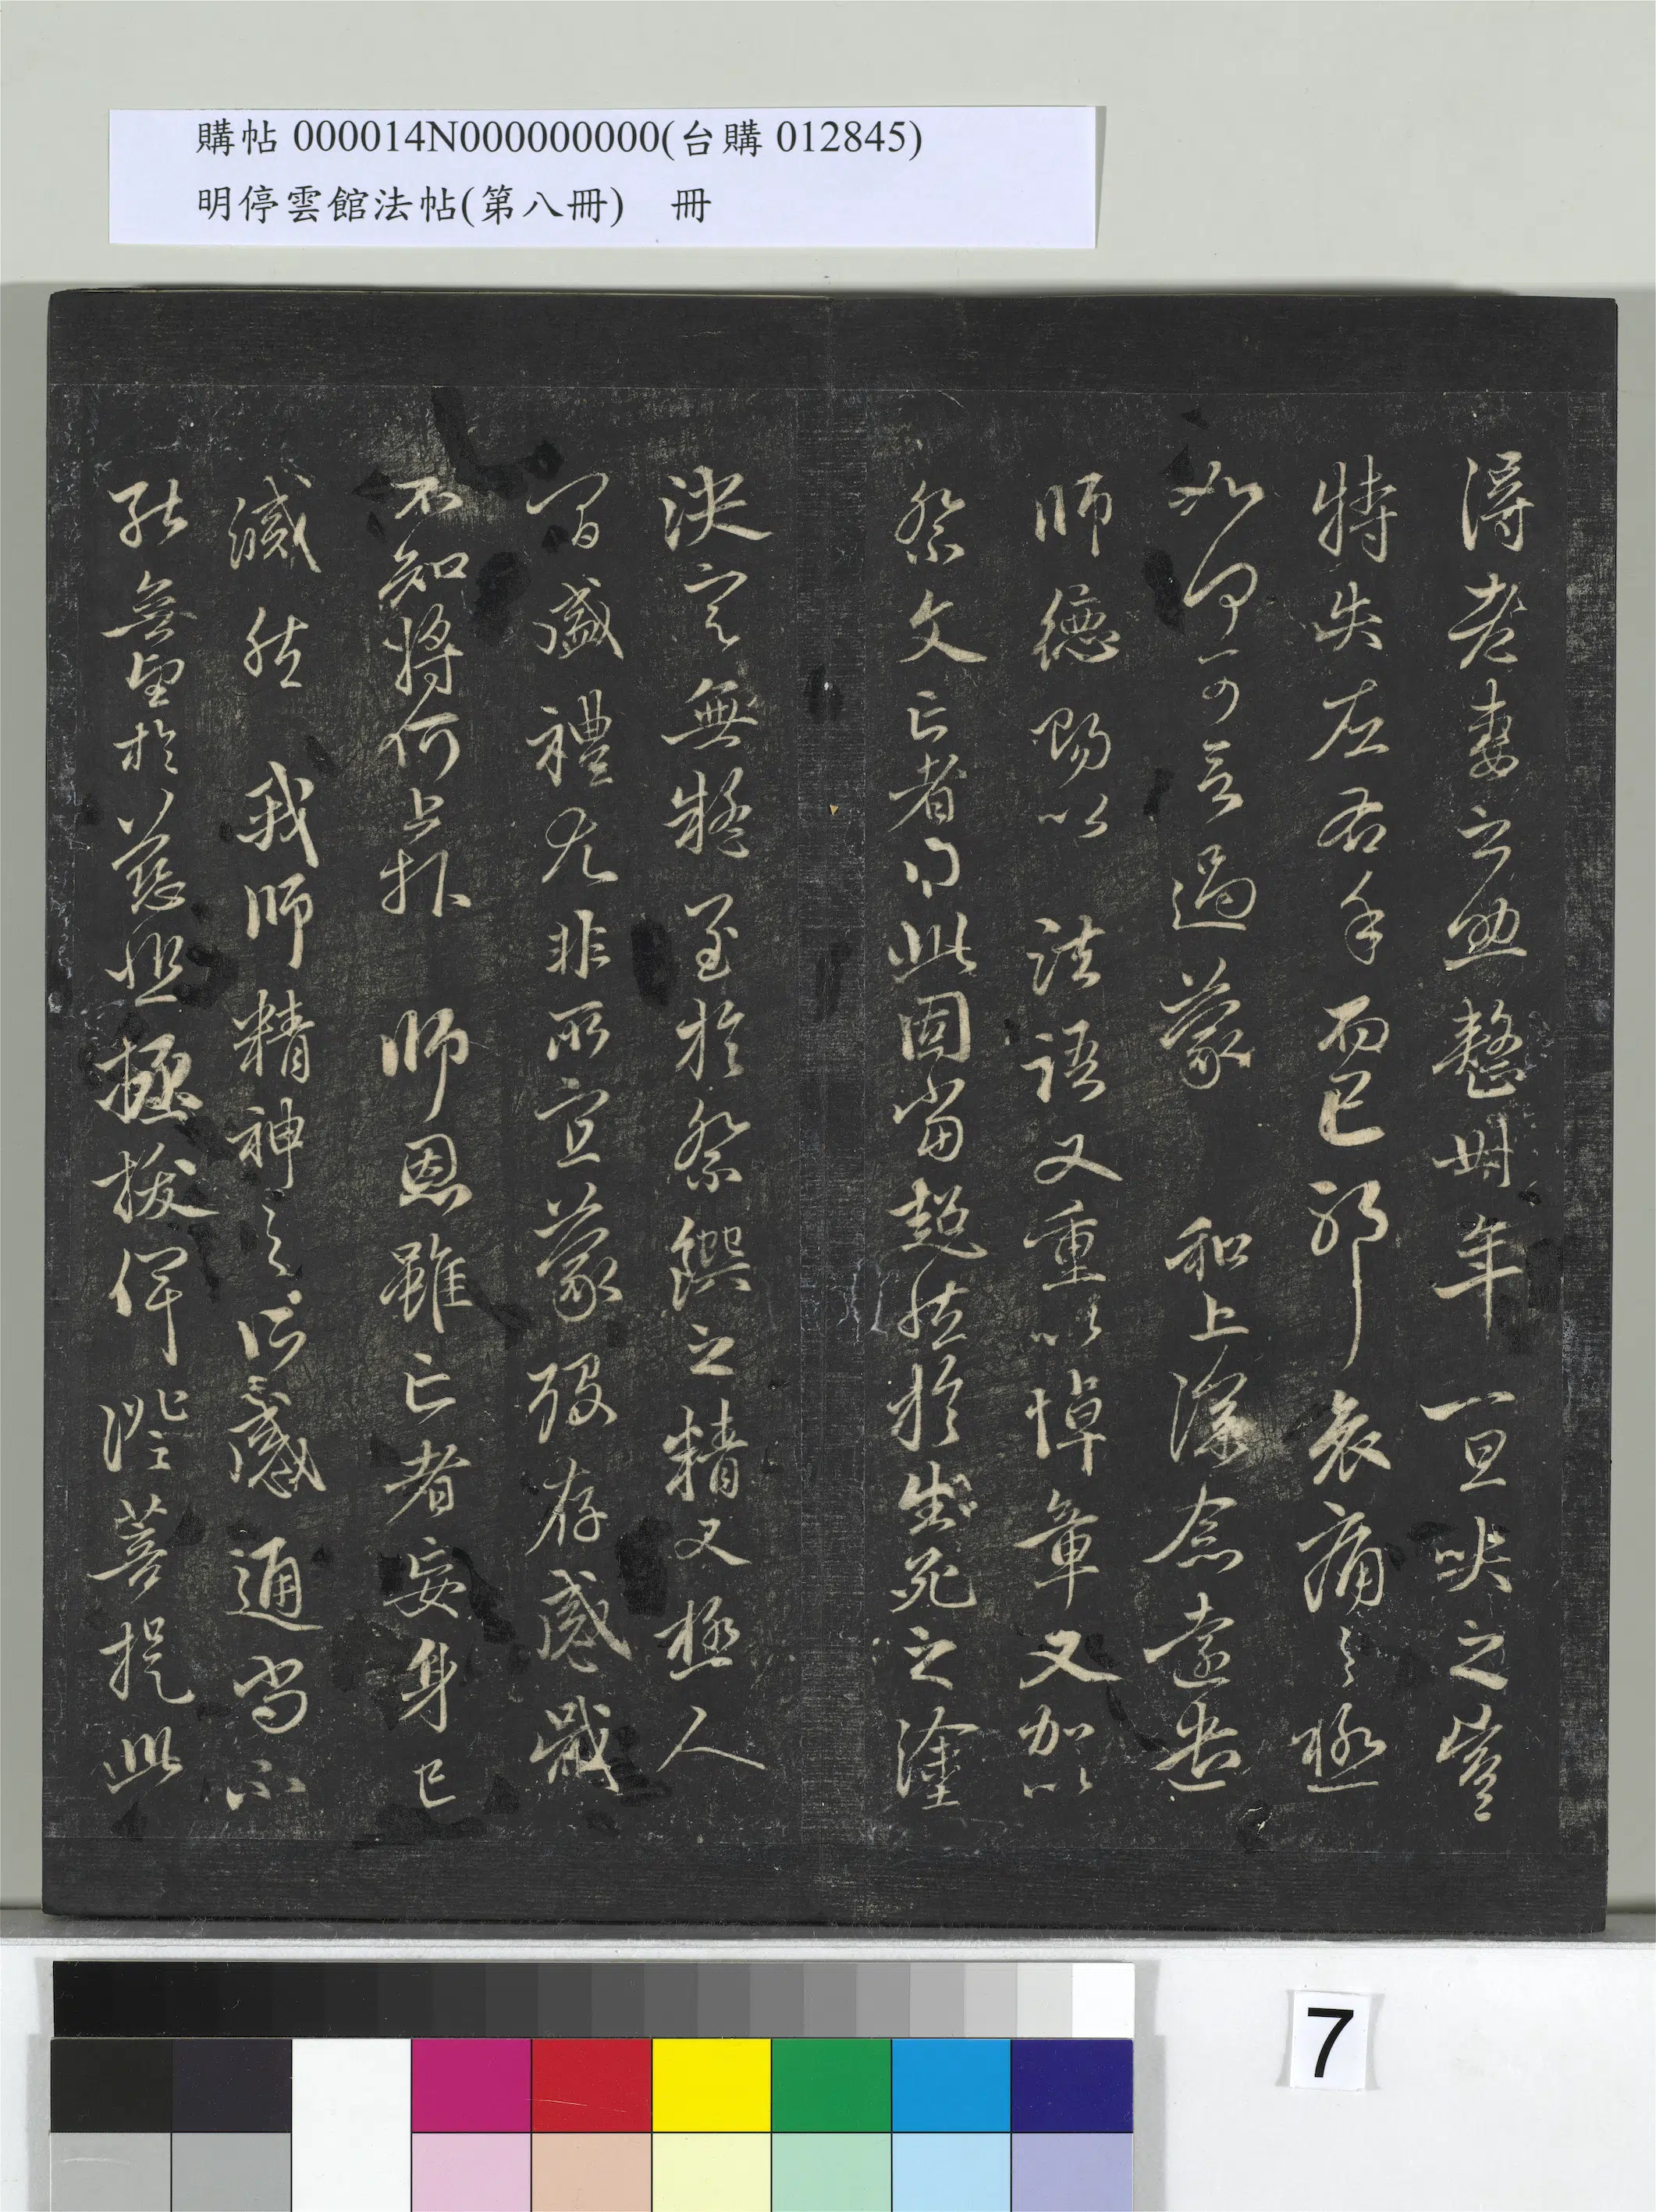 購帖 000014N000000000(台購 012845)
明停雲館法帖(第八冊) 冊
得老妻之助整卅年一旦哭之豈
特失左右手而已耶哀痛之極
如何可言過蒙 和上深念遠遣
師德賜以 法語又重以悼章又加以
祭文亡者得此固當超然於生死之塗
決定無疑至於祭饌之精又極人
間盛禮尤非所宜蒙歿存感戴
不知將何上報 師恩雖亡者妄身已
滅然 我師精神之所感通尚不
能無望於慈悲拯拔俾證菩提此
7